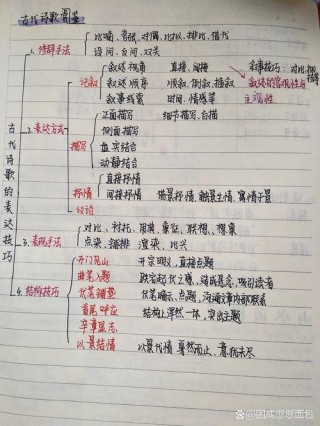 古代诗歌鉴
1.修辞手法 比喻、夸张、对偶、比拟、排比、借代
设问、反问、双关
古代诗歌的表达技巧
2.表达方式
记叙 叙述视角 直接、间接
叙述顺序 顺叙、倒叙、插叙
叙事线索 时间、情感等
叙事技巧：对比、抑扬
叙述的客观性与
主观性
描写 正面描写 细节描写、白描
侧面描写
虚实结合
动静结合
抒情 直接抒情
间接抒情 借景抒情、触景生情、寓情于景
议论
3.表现手法 对比、衬托、用典、象征、联想、想象
点染、铺排、渲染、比兴
4.结构技巧
开门见山 开宗明义，直接点题
曲笔入题
伏笔铺垫
首尾呼应 结构上浑然一体，突出主题
卒章显志
以景结情 以景代情 戛然而止，意犹未尽
@国成憨憨面包